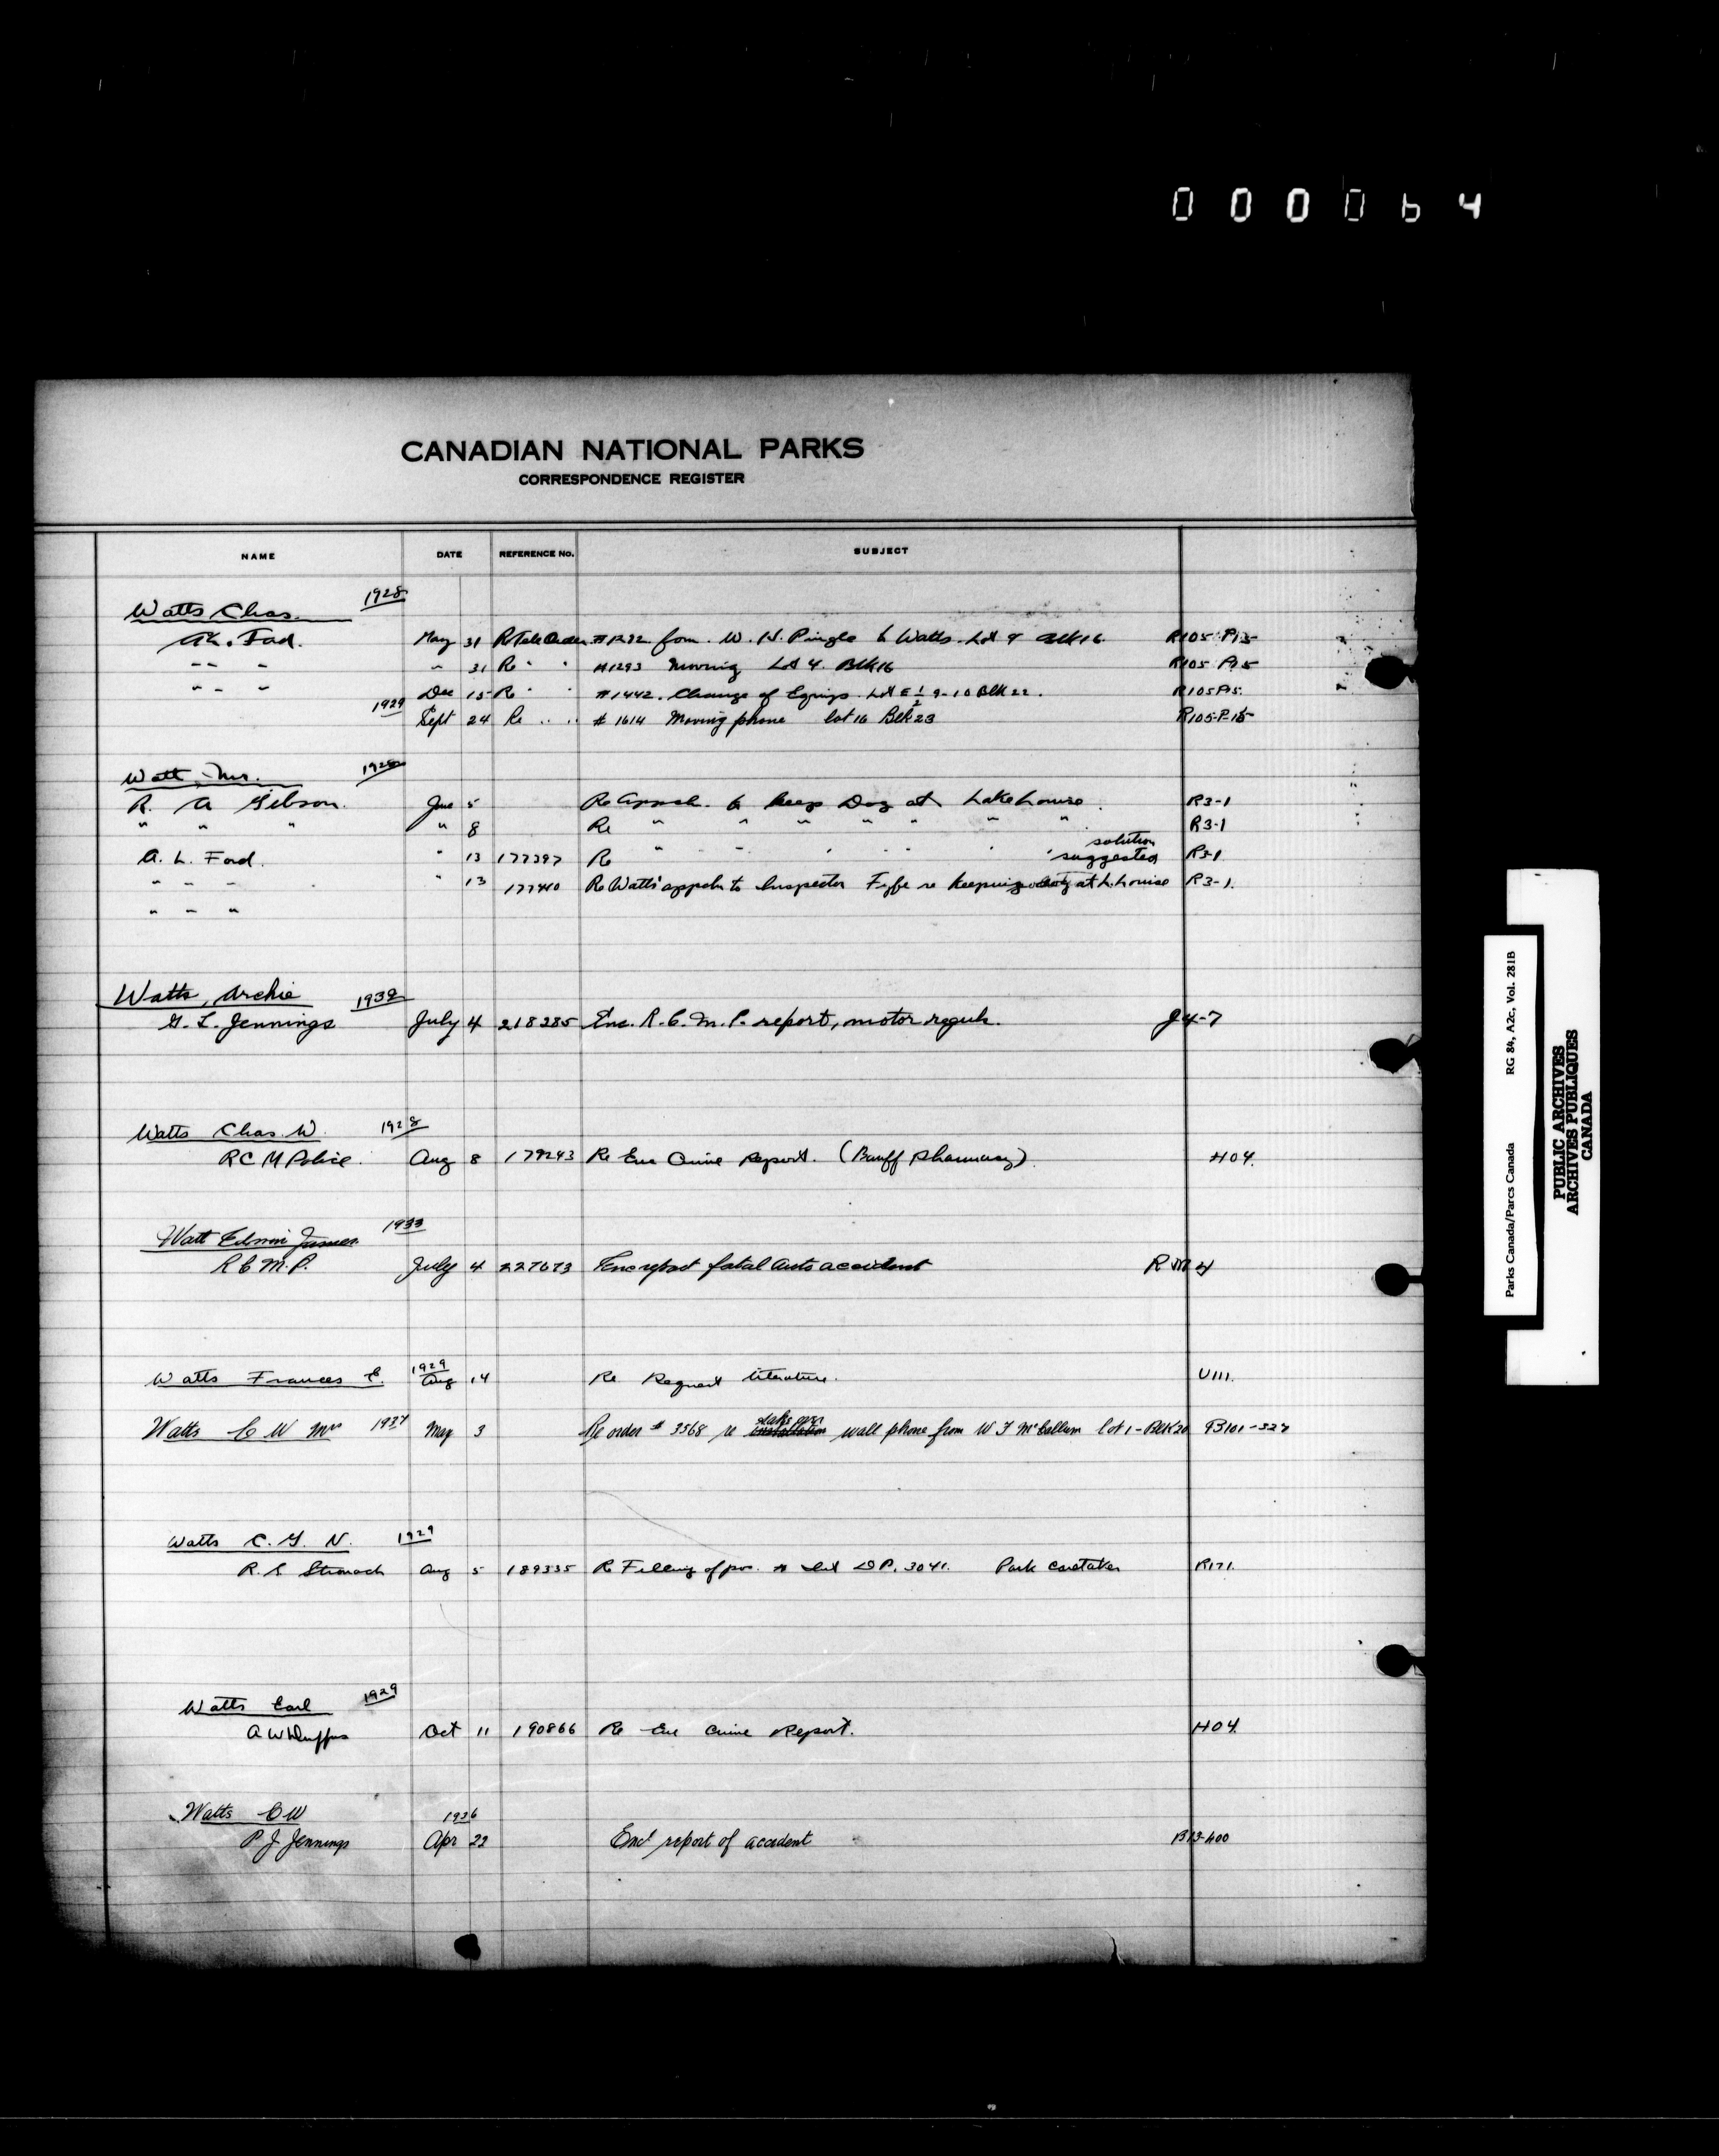 000064
CANADIAN NATIONAL PARKS
CORRESPONDENCE REGISTER
NAME DATE REFERENCE NO. SUBJECT
Watts Chas. 1928
A.L. Ford. May 31 Re Tele Order #1292 from W. H. Pringle to Watts Lot 4 Blk 16 R105-P15
" " " " 31 Re " " #1293 Moving Lot 4. Blk 16 R105 P15
" " " Dec 15 Re " " #1442. Change of Lot E ½ 9-10 Blk 22. R105 P15.
1929 Sept 24 Re " " #1614 Moving phone lot 16 Blk 23 R105-P.15
Watt, Mr. 1928
R. A Gibson. June 5 Re appch. to keep Dog at Lake Louise. R3-1
" " " " 8 Re " " " " " " " R3-1
A. L. Ford. " 13 177397 Re " " " " " " solution suggested R3-1
" " " " 13 177410 Re Watts' appch to Inspector Fyfe re keeping at L. Louise R3-1.
" " "
Watts, Archie 1932
G. L. Jennings July 4 218285 Enc. R.C.M.P. report, motor reguls. J4-7
Watts Chas. W. 1928
R C M Police. Aug 8 179243 Re Enc Crime Report. (Banff Pharmacy). H04.
Watt Edwin James 1933
R C M.P. July 4 227673 Enc report fatal auto accident R M 4
Watts Frances E. 1929 Aug 14 Re Request literature. U111.
Watts C W Mrs 1937 May 3 Re order # 3568 re take over wall phone from W J McCallum lot 1 - Blk 20 B101-327
Watts C. G. N. 1929
R. S Stronach Aug 5 189335 Re Filling of pos. D P. 3041. Park Caretaker R171.
Watts Earl 1929
A W Duffus Oct 11 190866 Re Enc Crime Report. H04.
Watts C W 1936
P J Jennings Apr 22 Encl report of accident B13-400
Parks Canada/Parcs Canada RG 84, A2c, Vol. 281B
PUBLIC ARCHIVES
ARCHIVES PUBLIQUES
CANADA